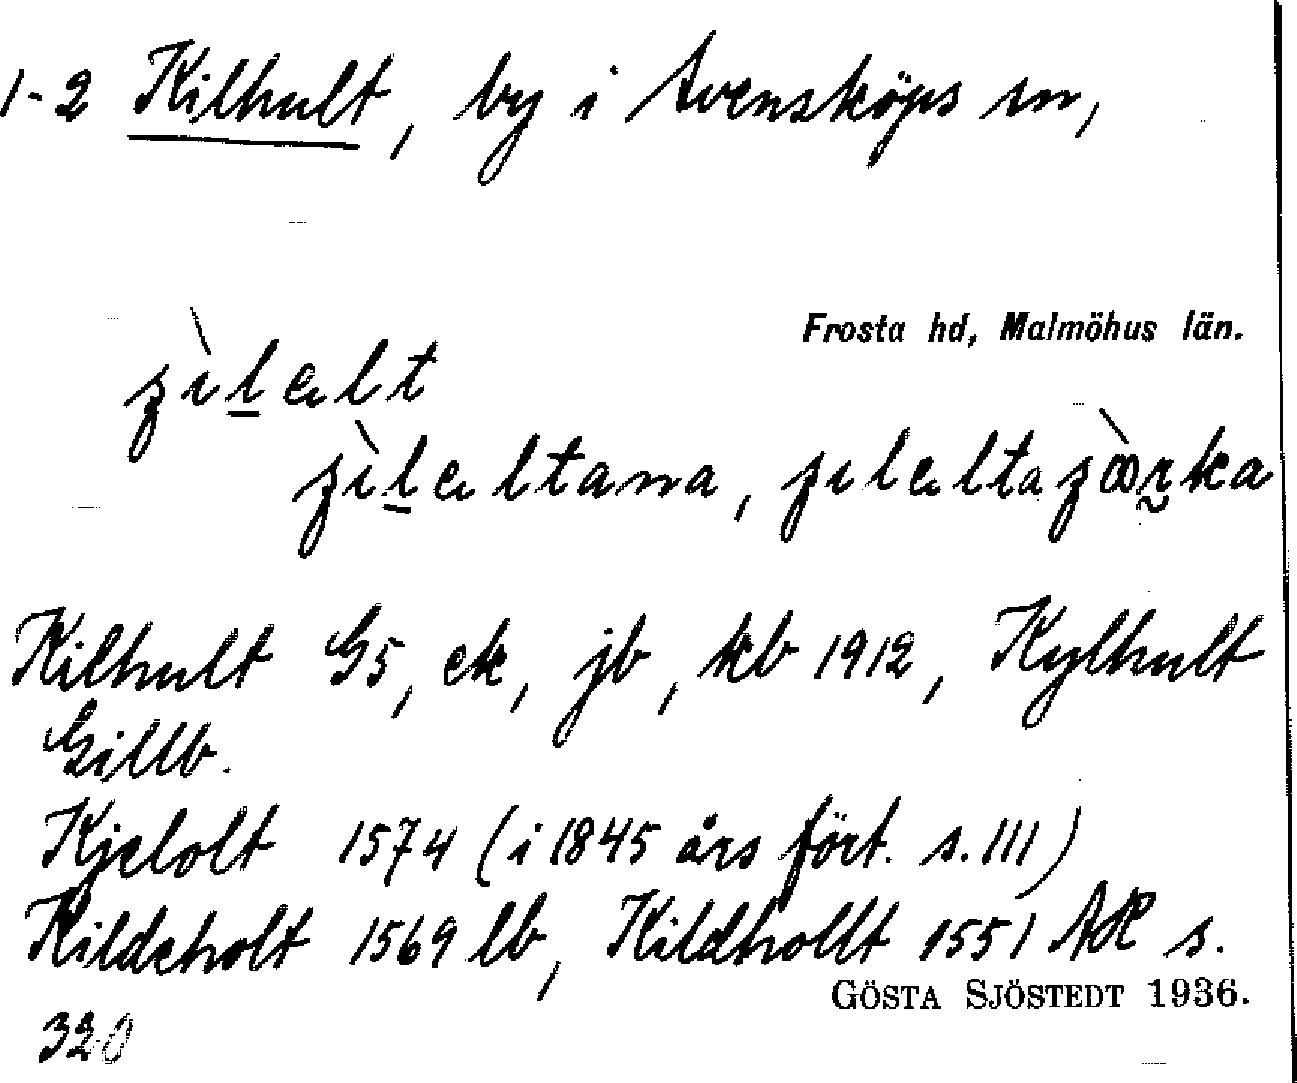 1-2 Kilhult, by i Svensköps sn,
Frosta hd, Malmöhus län.
Kilhult G5, ek, jb, kb 1912, Kylhult
Gillb.
Kjelolt 1574 (i 1845 års fört. s. 111)
Kildeholt 1569 lb, Kildhollt 1551 s.
320
GÖSTA SJÖSTEDT 1936.